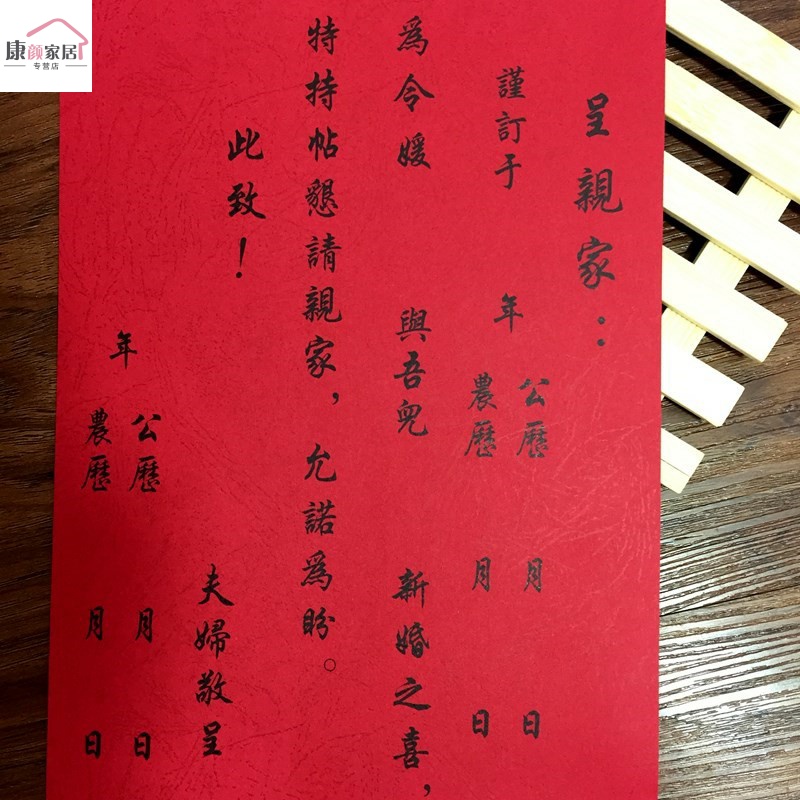 康颜家居
专营店
呈親家：
謹訂于 年 公歷 月 日
農歷 月 日
爲令媛 與吾兒 新婚之喜，
特持帖懇請親家，允諾爲盼。
此致！
夫婦敬呈
年 公歷 月 日
農歷 月 日